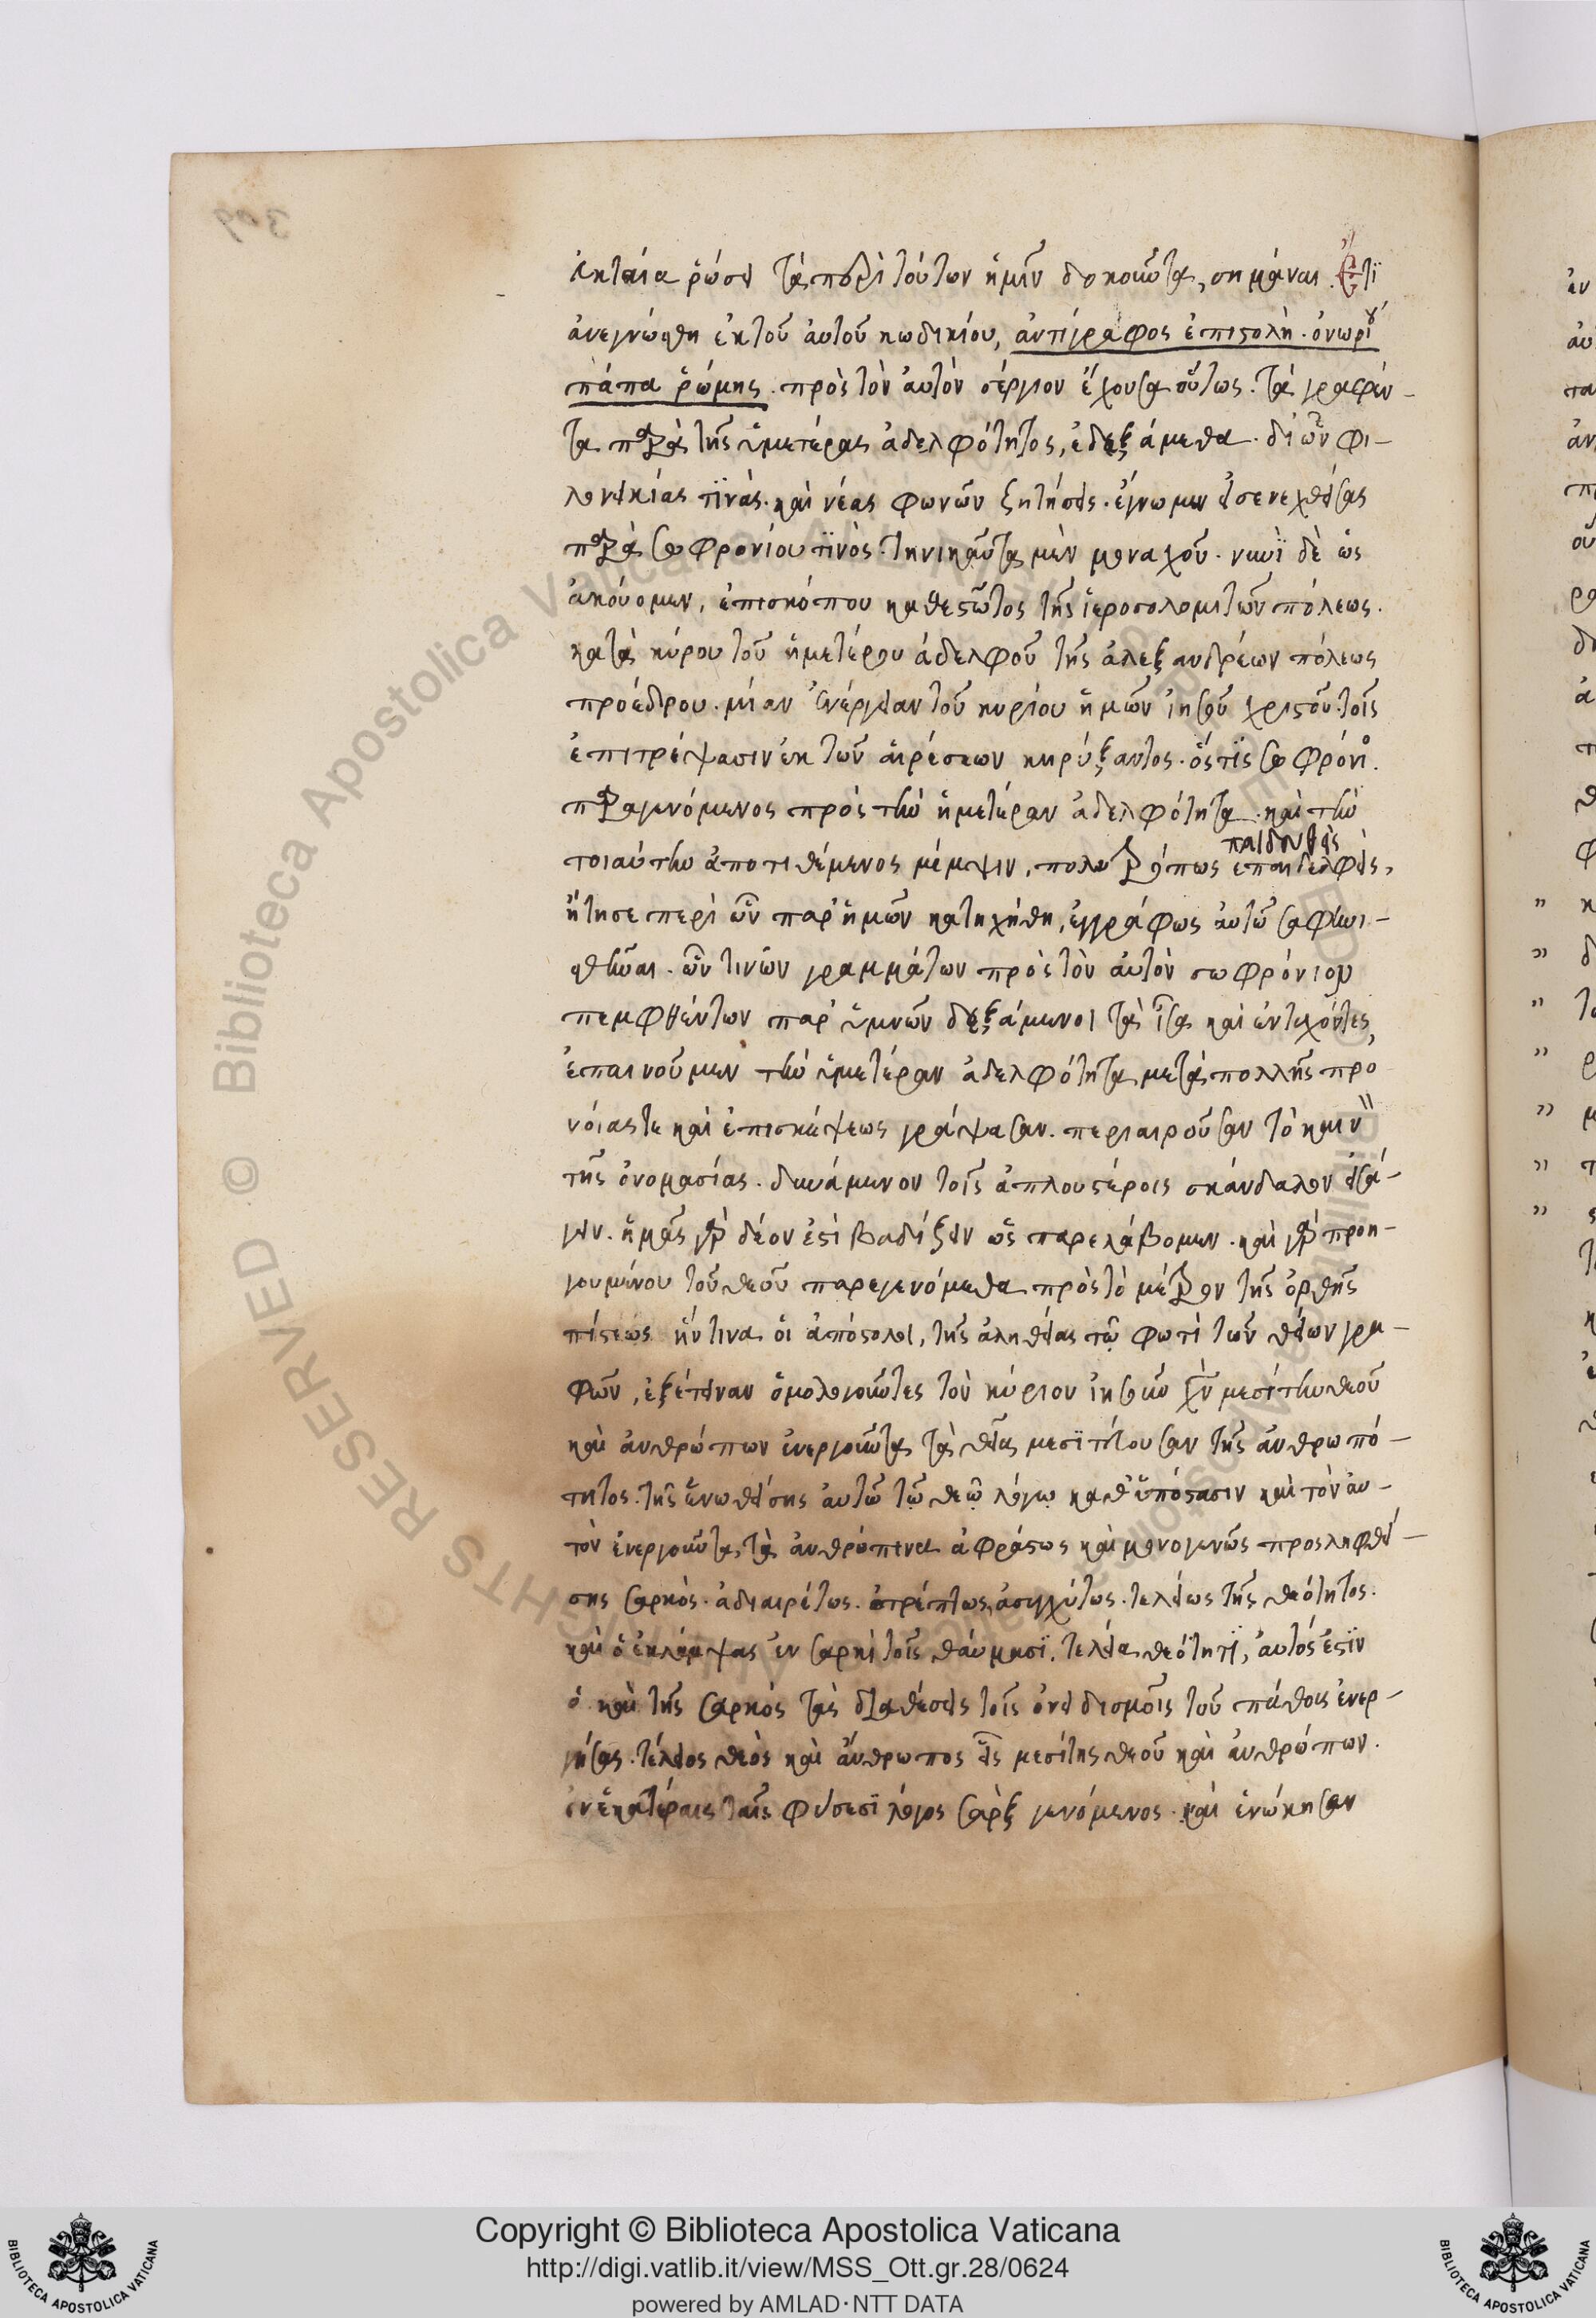 ἐκταία ῥώσει τὰ περὶ τούτων ἡμῖν δοκοῦντα, σημάναι. Ἔτι
ἀνεγνώσθη ἐκ τοῦ αὐτοῦ κωδικίου, ἀντίγραφος ἐπιστολὴ. ὀνωρίου
πάπα ῥώμης. πρὸς τὸν αὐτὸν σέργιον ἔχουσα οὕτως. τὰ γραφέν-
τα παρὰ τῆς ὑμετέρας ἀδελφότητος, ἐδεξάμεθα. δι ὧν φι-
λονεικίας τινὰς. καὶ νέας φωνῶν ζητήσεις. ἔγνωμεν εἰσενεχθείσας
παρὰ σωφρονίου τινὸς. τηνικαῦτα μὲν μοναχοῦ. νυνὶ δὲ ὡς
ἀκούομεν, ἐπισκόπου καθεστῶτος τῆς ἱεροσολομιτῶν πόλεως.
κατὰ κύρου τοῦ ἡμετέρου ἀδελφοῦ τῆς ἀλεξανδρέων πόλεως
προέδρου. μίαν ἐνέργειαν τοῦ κυρίου ἡμῶν ἰησοῦ χριστοῦ. τοῖς
ἐπιτρέψασιν ἐκ τῶν αἱρέσεων κηρύξαντος. ὅστις σωφρόνιος.
παραγενόμενος πρὸς τὴν ἡμετέραν ἀδελφότητα. καὶ τὴν
τοιαύτην ἀποτιθέμενος μέμψιν, πολυτρόπως
παιδευθεὶς
ᾔτησε περὶ ὧν παρ ἡμῶν κατηχήθη, ἐγγράφως αὐτῷ σαφηνι-
σθῆναι. ὧν τινῶν γραμμάτων πρὸς τὸν αὐτὸν σωφρόνιον
πεμφθέντων παρ ὑμῶν δεξάμενοι τὰ ἶσα καὶ ἐντυχόντες,
ἐπαινοῦμεν τὴν ὑμετέραν ἀδελφότητα μετὰ πολλῆς προ
νοίας τε καὶ ἐπισκέψεως γράψασαν. περιαιροῦσαν τὸ καινὸν
τῆς ὀνομασίας. δυνάμενον τοῖς ἁπλουστέροις σκάνδαλον εἰσά-
γειν. ἡμᾶς γὰρ δέον ἐστὶ βαδίζειν ὡς παρελάβομεν. καὶ γὰρ προη-
γουμένου τοῦ θεοῦ παρεγενόμεθα πρὸς τὸ μέτρον τῆς ὀρθῆς
πίστεως ἥν τινα οἱ ἀπόστολοι, τῆς ἀληθείας τῷ φωτὶ τῶν θείων γρα-
φῶν, ἐξέτειναν ὁμολογοῦντες τὸν κύριον ἰησοῦν χν μεσίτην θεοῦ
καὶ ἀνθρώπων ἐνεργοῦντα τὰ θεῖα μεσιτευούσαν τῆς ἀνθρωπό-
τητος. τῆς ἑνωθείσης αὐτῷ τῷ θεῷ λόγῳ καθ ὑπόστασιν καὶ τὸν αὐ-
τὸν ἐνεργοῦντα, τὰ ἀνθρώπινα ἀφράστως καὶ μονογενῶς προσληφθεί-
σης σαρκὸς. ἀδιαιρέτως. ἀτρέπτως, ἀσυγχύτως. τελείως τῆς θεότητος.
καὶ ὁ ἐκλάμψας ἐν σαρκὶ τοῖς θαύμασι. τελεία θεότητι, αὐτός ἐστιν
ὁ καὶ τῆς σαρκὸς τὰς διαθέσεις τοῖς ὀνειδισμοῖς τοῦ πάθους ἐνερ-
γήσας. τέλειος θεὸς καὶ ἄνθρωπος εἷς μεσίτης θεοῦ καὶ ἀνθρώπων.
ἐν ἑκατέραις ταῖς φύσεσι λόγος σὰρξ γενόμενος. καὶ ἐνώκησεν
Copyright © Biblioteca Apostolica Vaticana
http://digi.vatlib.it/view/MSS_Ott.gr.28/0624
powered by AMLAD·NTT DATA